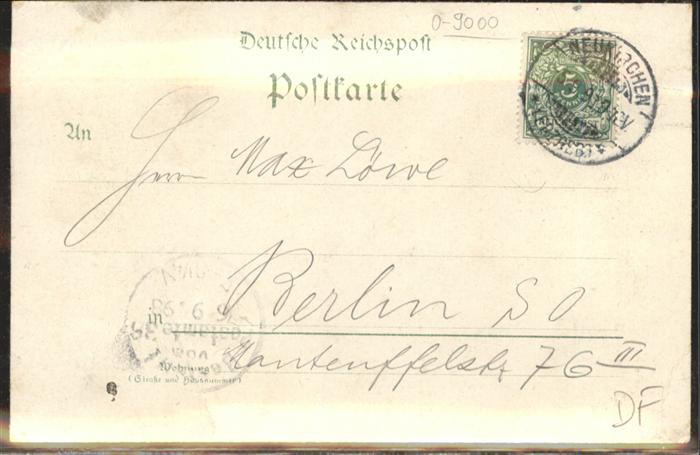 0-9000
Deutsche Reichspost
Postkarte
5
NEUKIRCHEN
An
Herrn Max Löwe
in
Berlin SO
Manteuffelstr 76 III
Wohnung
(Straße und Hausnummer)
DF